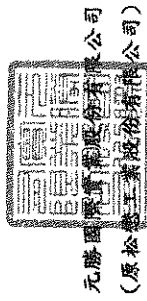 元勝國際實業股份有限公司
(原松懋工業股份有限公司)